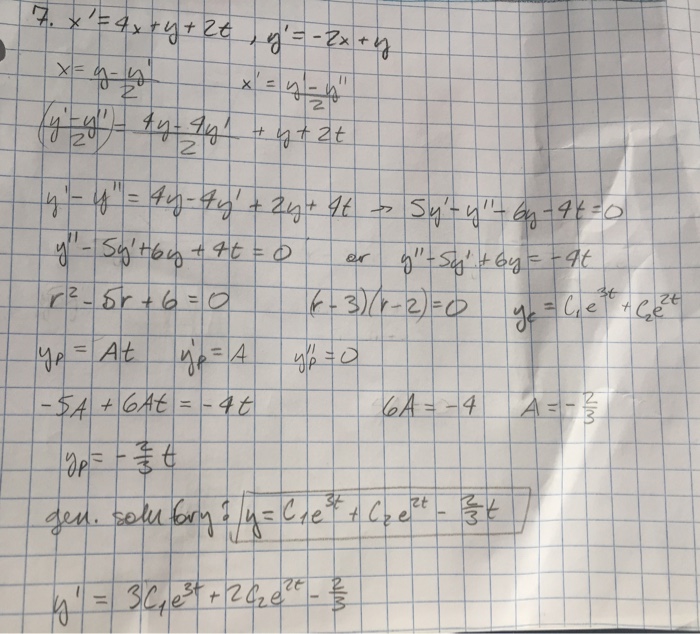 7. x' = 4x + y + 2t , y' = -2x + y
x = (y - y')/2 x' = (y' - y'')/2
((y' - y'')/2) = (4y - 4y')/2 + y + 2t
y' - y'' = 4y - 4y' + 2y + 4t → 5y' - y'' - 6y - 4t = 0
y'' - 5y' + 6y + 4t = 0 or y'' - 5y' + 6y = -4t
r² - 5r + 6 = 0 (r - 3)(r - 2) = 0 y_c = C₁e^{3t} + C₂e^{2t}
y_p = At y'_p = A y''_p = 0
-5A + 6At = -4t 6A = -4 A = -2/3
y_p = -2/3 t
gen. solu for y : y = C₁e^{3t} + C₂e^{2t} - 2/3 t
y' = 3C₁e^{3t} + 2C₂e^{2t} - 2/3